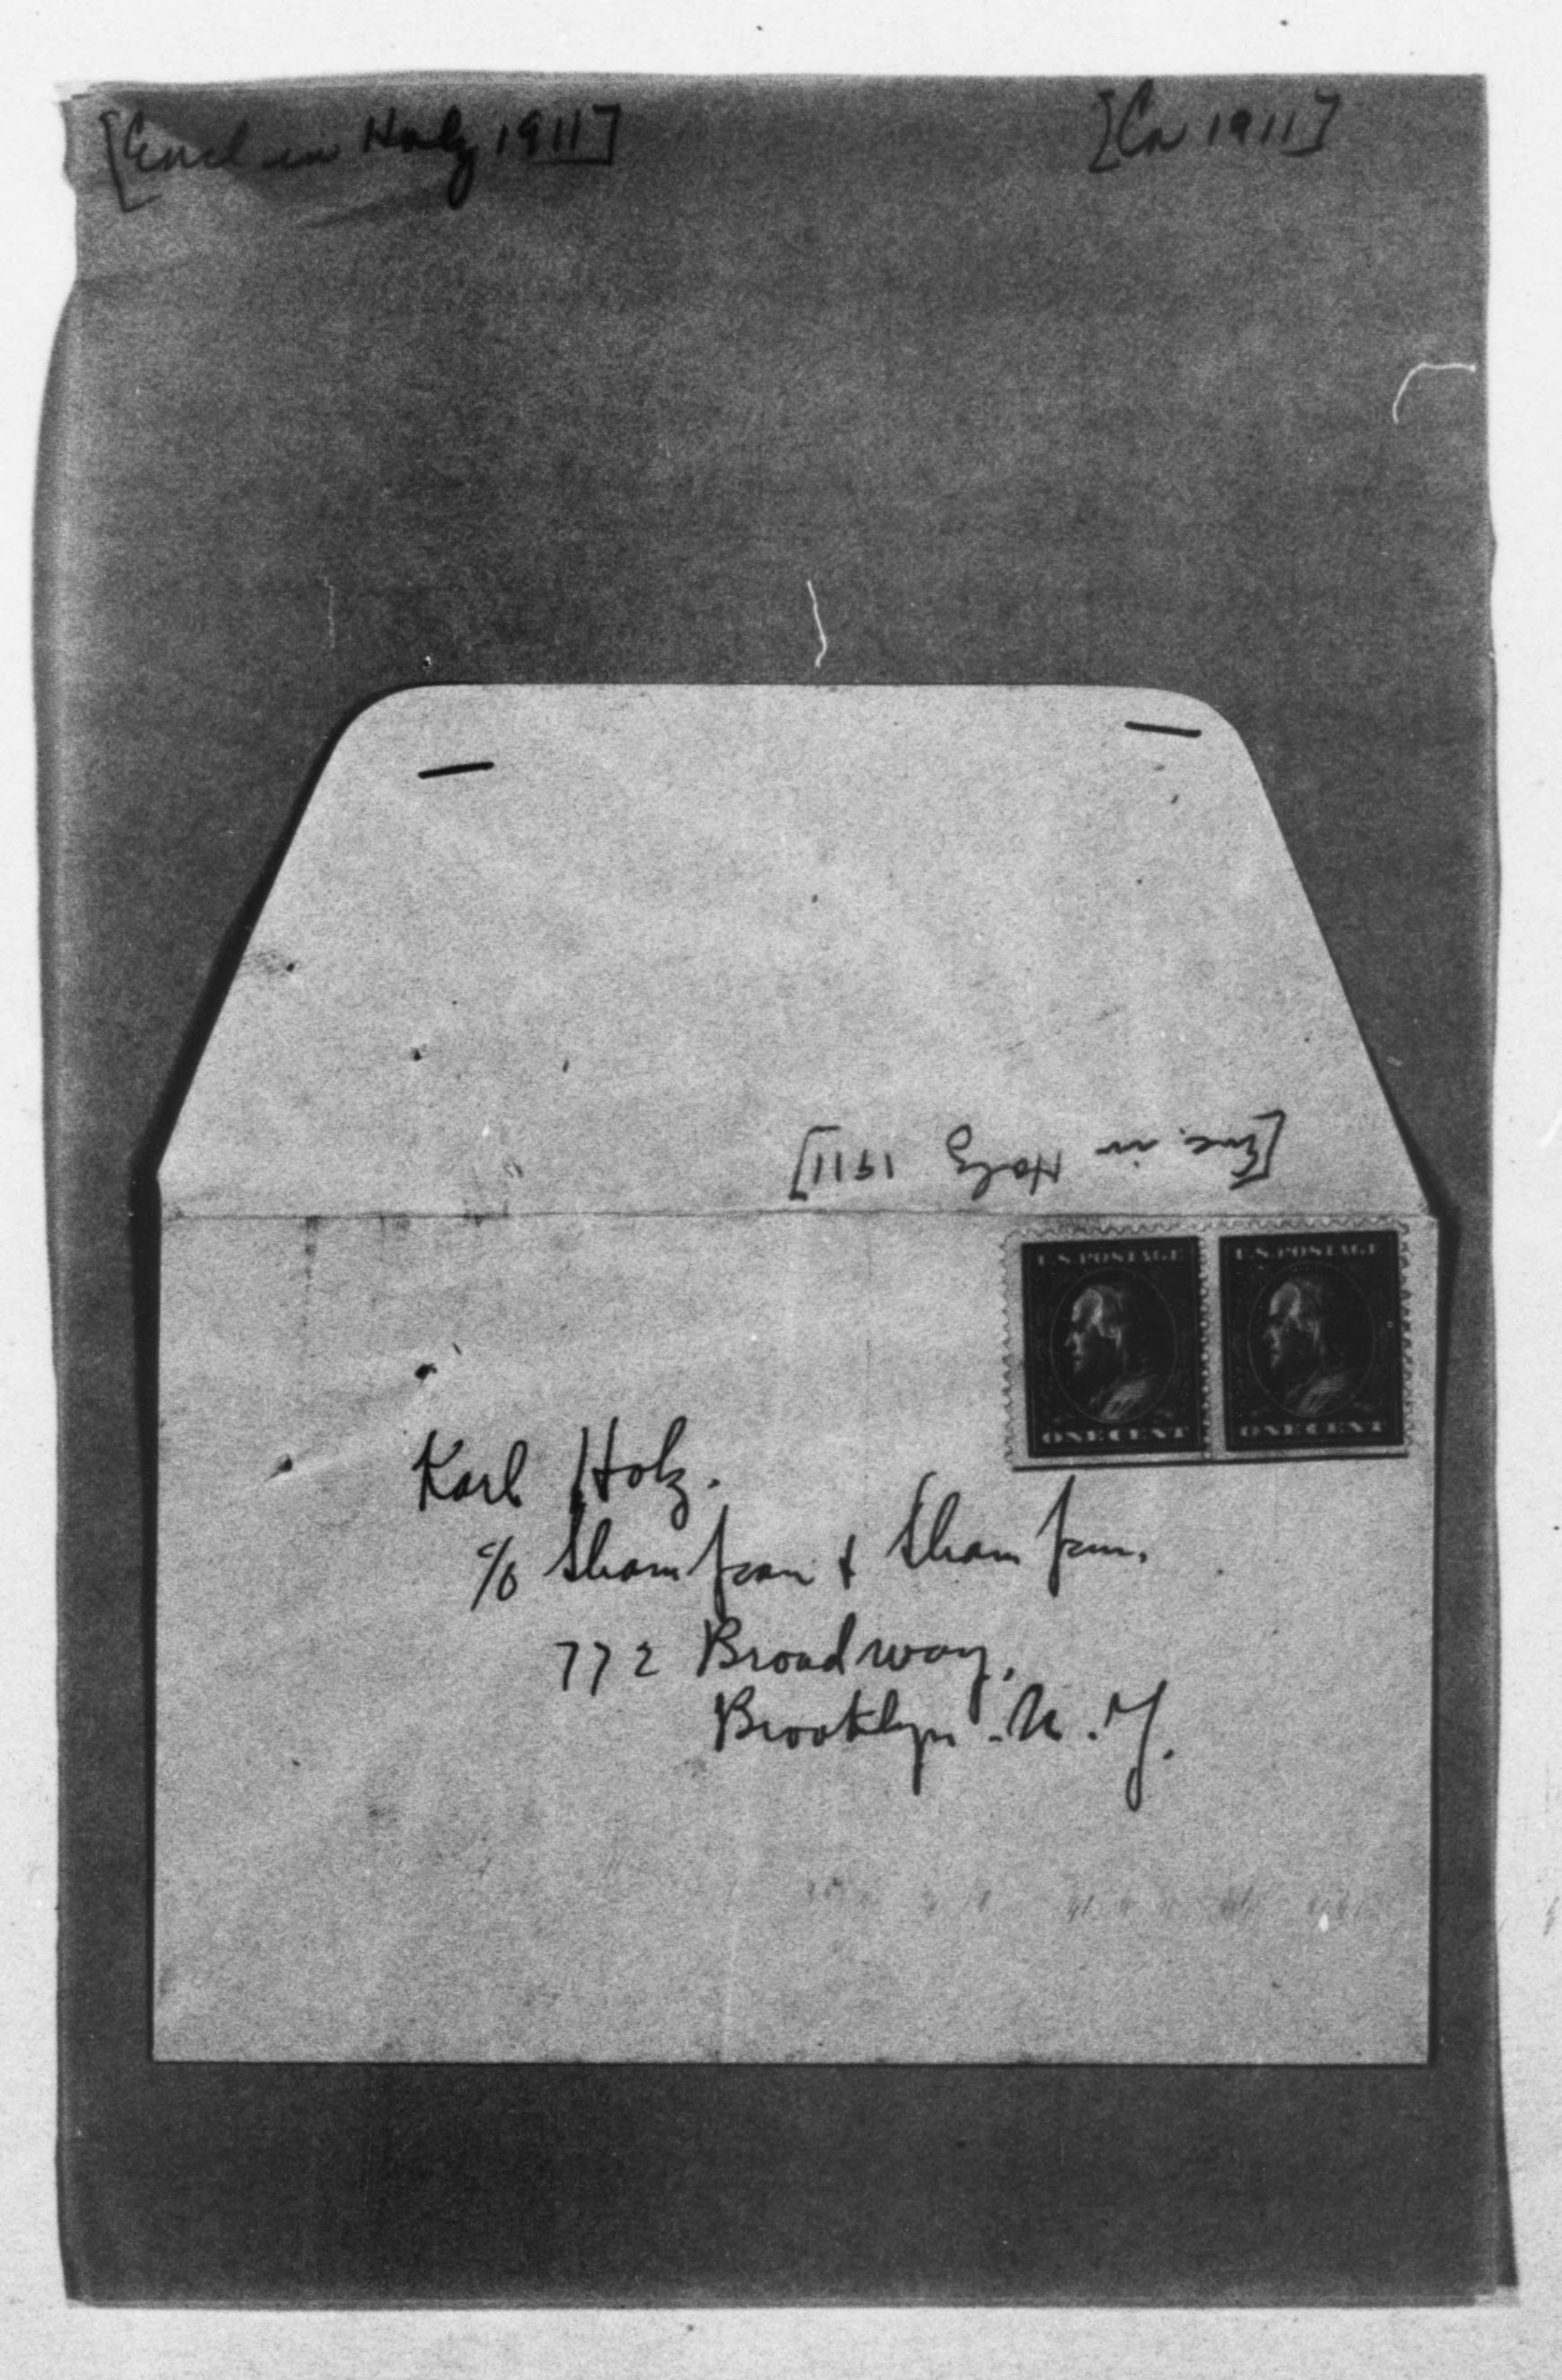 [Encl in Holz 1911]
[Ca 1911]
[Enc. in Holz 1911]
U.S. POSTAGE
ONE CENT
U.S. POSTAGE
ONE CENT
Karl Holz.
c/o &
772 Broadway,
Brooklyn. N.Y.